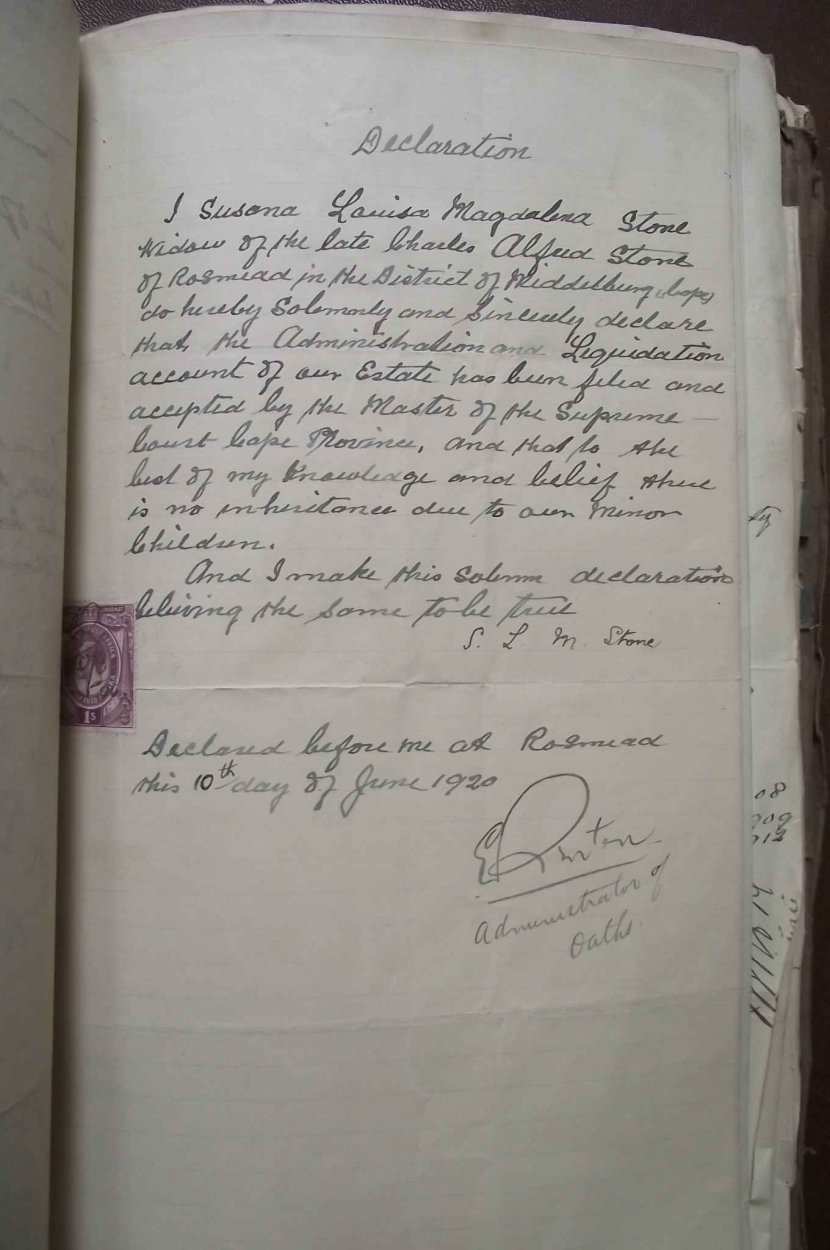 Declaration
I Susana Louisa Magdalena Stone
Widow of the late Charles Alfred Stone
of Rosmead in the District of Middelburg Cape,
do hereby Solemnly and Sincerely declare
that the Administration and Liquidation
account of our Estate has been filed and
accepted by the Master of the Supreme
Court Cape Province, and that to the
best of my Knowledge and belief there
is no inheritance due to our Minor
Children.
And I make this solemn declaration
believing the same to be true
S. L. M. Stone
1s
Declared before me at Rosmead
this 10th day of June 1920
Administrator of
Oaths.
08
909
912